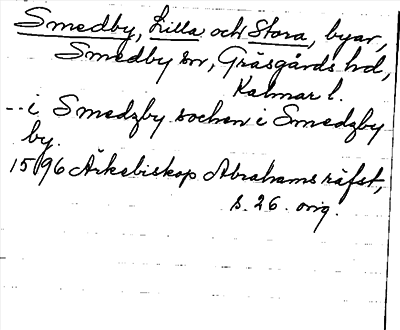 Smedby, Lilla och Stora, byar,
Smedby sn, Gräsgårds hd,
Kalmar l.
-- i Smedzby sochen i Smedzby
by.
1596 Ärkebiskop Abrahams räfst,
s. 26. orig.